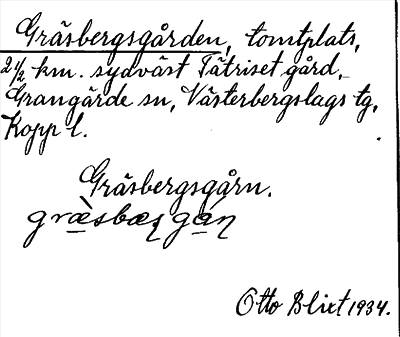 Gräsbergsgården, tomtplats,
2 1/2 km. sydväst Tätriset gård,
Grangärde sn, Västerbergslags tg,
Kopp l.
Gräsbergsgårn.
Otto Blixt 1934.